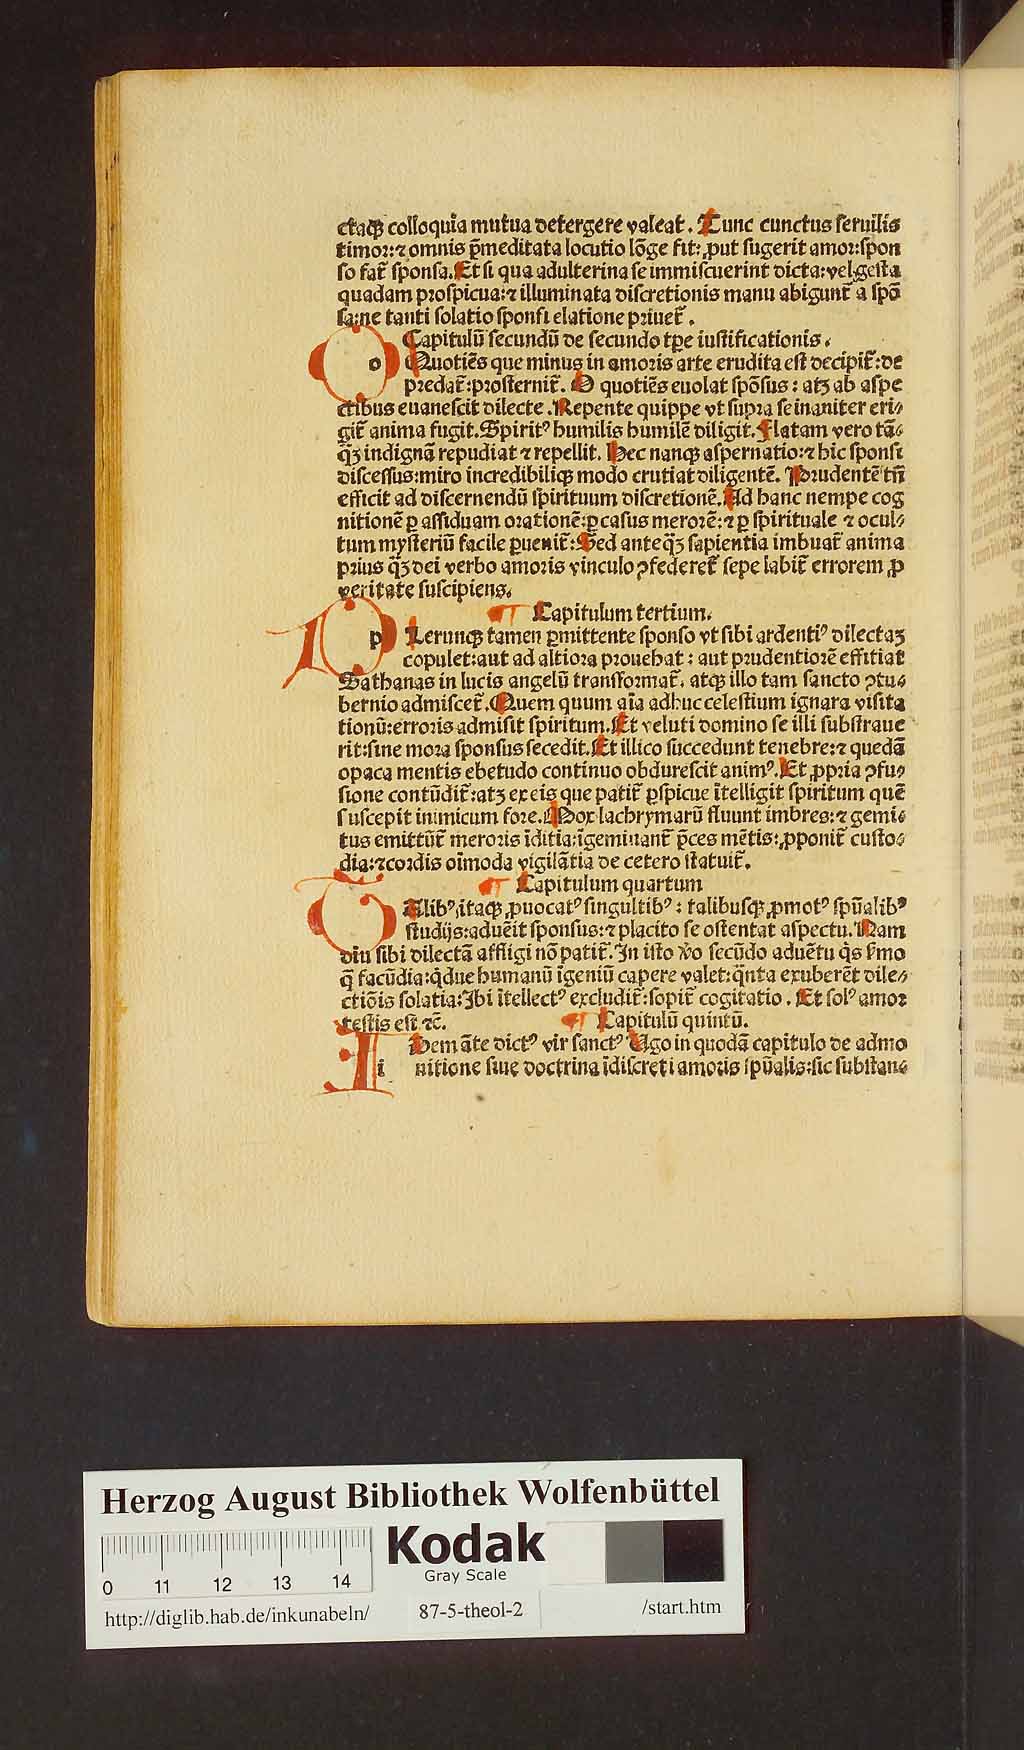 ctaqꝫ colloquia mutua detergere valeat. Tunc cunctus seruilis
timor: ⁊ omnis p̄meditata locutio lōge fit: ꝓut sugerit amor: spon
so fat̄ sponsa. Et si qua adulterina se immiscuerint dicta: vel gesta
quadam prospicua: ⁊ illuminata discretionis manu abigunt̄ a spō
sa: ne tanti solatio sponsi elatione priuet̄.
Capitulū secundū de secundo tp̄e iustificationis.
o Quotiēs que minus in amoris arte erudita est decipit̄: de
predat̄: prosternit̄. O quotiēs euolat spōsus: atꝫ ab aspe
ctibus euanescit dilecte. Repente quippe vt supra se inaniter eri⸗
git̄ anima fugit. Spiritꝰ humilis humilē diligit. Elatam vero tā⸗
q̄ꝫ indignā repudiat ⁊ repellit. Hec nanqꝫ aspernatio: ⁊ hic sponsi
discessus: miro incredibiliqꝫ modo crutiat diligentē. Prudentē tn̄
efficit ad discernendū spirituum discretionē. Ad hanc nempe cog
nitionē ꝑ assiduam orationē: ꝑ casus merorē: ⁊ ꝑ spirituale ⁊ ocul⸗
tum mysteriū facile ꝑuenit̄: Sed ante q̄ꝫ sapientia imbuat̄ anima
prius q̄ꝫ dei verbo amoris vinculo ꝯfederet̄ sepe labit̄ errorem ꝓ
veritate suscipiens.
Capitulum tertium.
p Lerunqꝫ tamen ꝑmittente sponso vt sibi ardentiꝰ dilectaꝫ
copulet: aut ad altiora prouehat: aut prudentiorē effitiat
Sathanas in lucis angelū transformat̄. atqꝫ illo tam sancto ꝯtu⸗
bernio admiscet̄. Quem quum aīa adhuc celestium ignara visita
tionū: erroris admisit spiritum. Et veluti domino se illi substraue
rit: sine mora sponsus secedit. Et illico succedunt tenebre: ⁊ quedā
opaca mentis ebetudo continuo obdurescit animꝰ. Et ꝓpria ꝯfu⸗
sione contūdit̄: atꝫ ex eis que patit̄ ꝑspicue ītelligit spiritum quē
suscepit inimicum fore. Mox lachrymarū fluunt imbres: ⁊ gemi⸗
tus emittūt̄ meroris īditia: īgeminant̄ p̄ces mētis: ꝓponit̄ custo⸗
dia: ⁊ cordis oīmoda vigilātia de cetero statuit̄.
Capitulum quartum
T Alibꝰ itaqꝫ ꝓuocatꝰ singultibꝰ: talibusqꝫ ꝓmotꝰ spūalibꝰ
studijs: aduēit sponsus: ⁊ placito se ostentat aspectu. Nam
diu sibi dilectā affligi nō patit̄. In isto v̄o secūdo aduētu q̄s sermo
q̄ facūdia: q̄due humanū īgeniū capere valet: q̄nta exuberēt dile⸗
ctiōis solatia: Ibi ītellectꝰ excludit̄: sopit̄ cogitatio. Et solꝰ amor
testis est ⁊c̄.
Capitulū quintū.
i Dem āte dictꝰ vir sanctꝰ Ugo in quodā capitulo de admo
nitione siue doctrina īdiscreti amoris spūalis: sic substan⸗
Herzog August Bibliothek Wolfenbüttel
Kodak
Gray Scale
0 11 12 13 14
http://diglib.hab.de/inkunabeln/ 87-5-theol-2 /start.htm